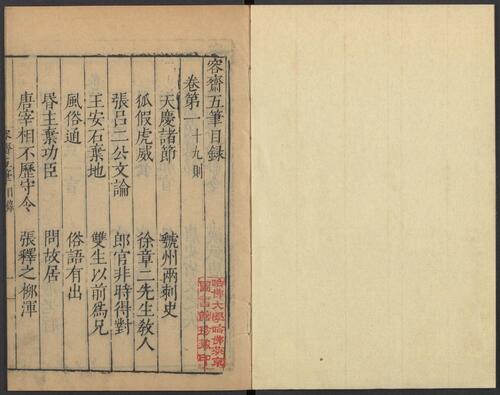 容齋五筆目録
卷第一 十九則
天慶諸節 虢州兩刺史
狐假虎威 徐章二先生教人
張呂二公文論 郎官非時得對
王安石棄地 雙生以前爲兄
風俗通 俗語有出
昏主棄功臣 問故居
唐宰相不歷守令 張釋之柳渾
容齋五筆目録 一
哈佛大學哈佛燕京
圖書館珍藏印